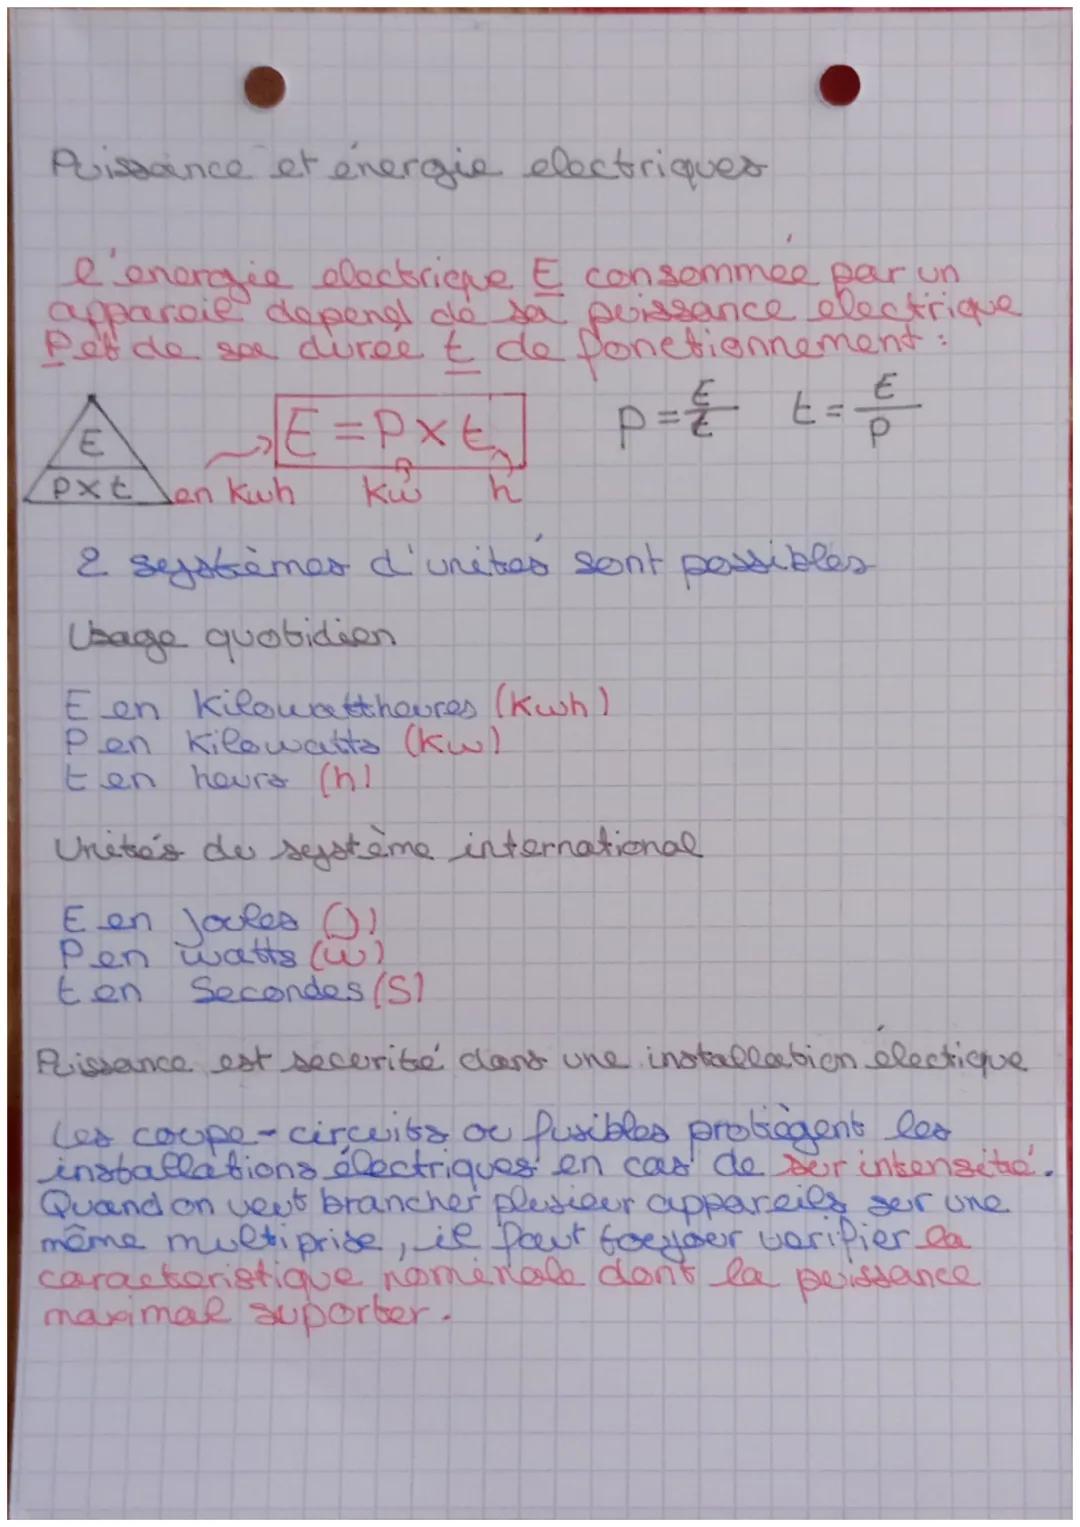 Puissance et énergie electriques
l'energie electrique E consommée par un
appareil depend de sa puissance electrique
P et de sa duree t de fonctionnement :
E
P x t
E = P x t
P = E/t t = E/P
en Kwh Kw h
2 systèmes d'unités sont possibles
Usage quotidien
E en Kilowattheures (Kwh)
P en Kilowatts (Kw)
t en heurs (h)
Unités du système international
E en Joules (J)
P en watts (w)
t en Secondes (S)
Puissance est securité dans une installation électique
Les coupe-circuits ou fusibles protiègent les
installations électriques en cas de sur intensité.
Quand on veut brancher plusieur appareils sur une
même multiprise, il faut toujour verifier la
caracteristique nominale dont la puissance
maximal suporter.